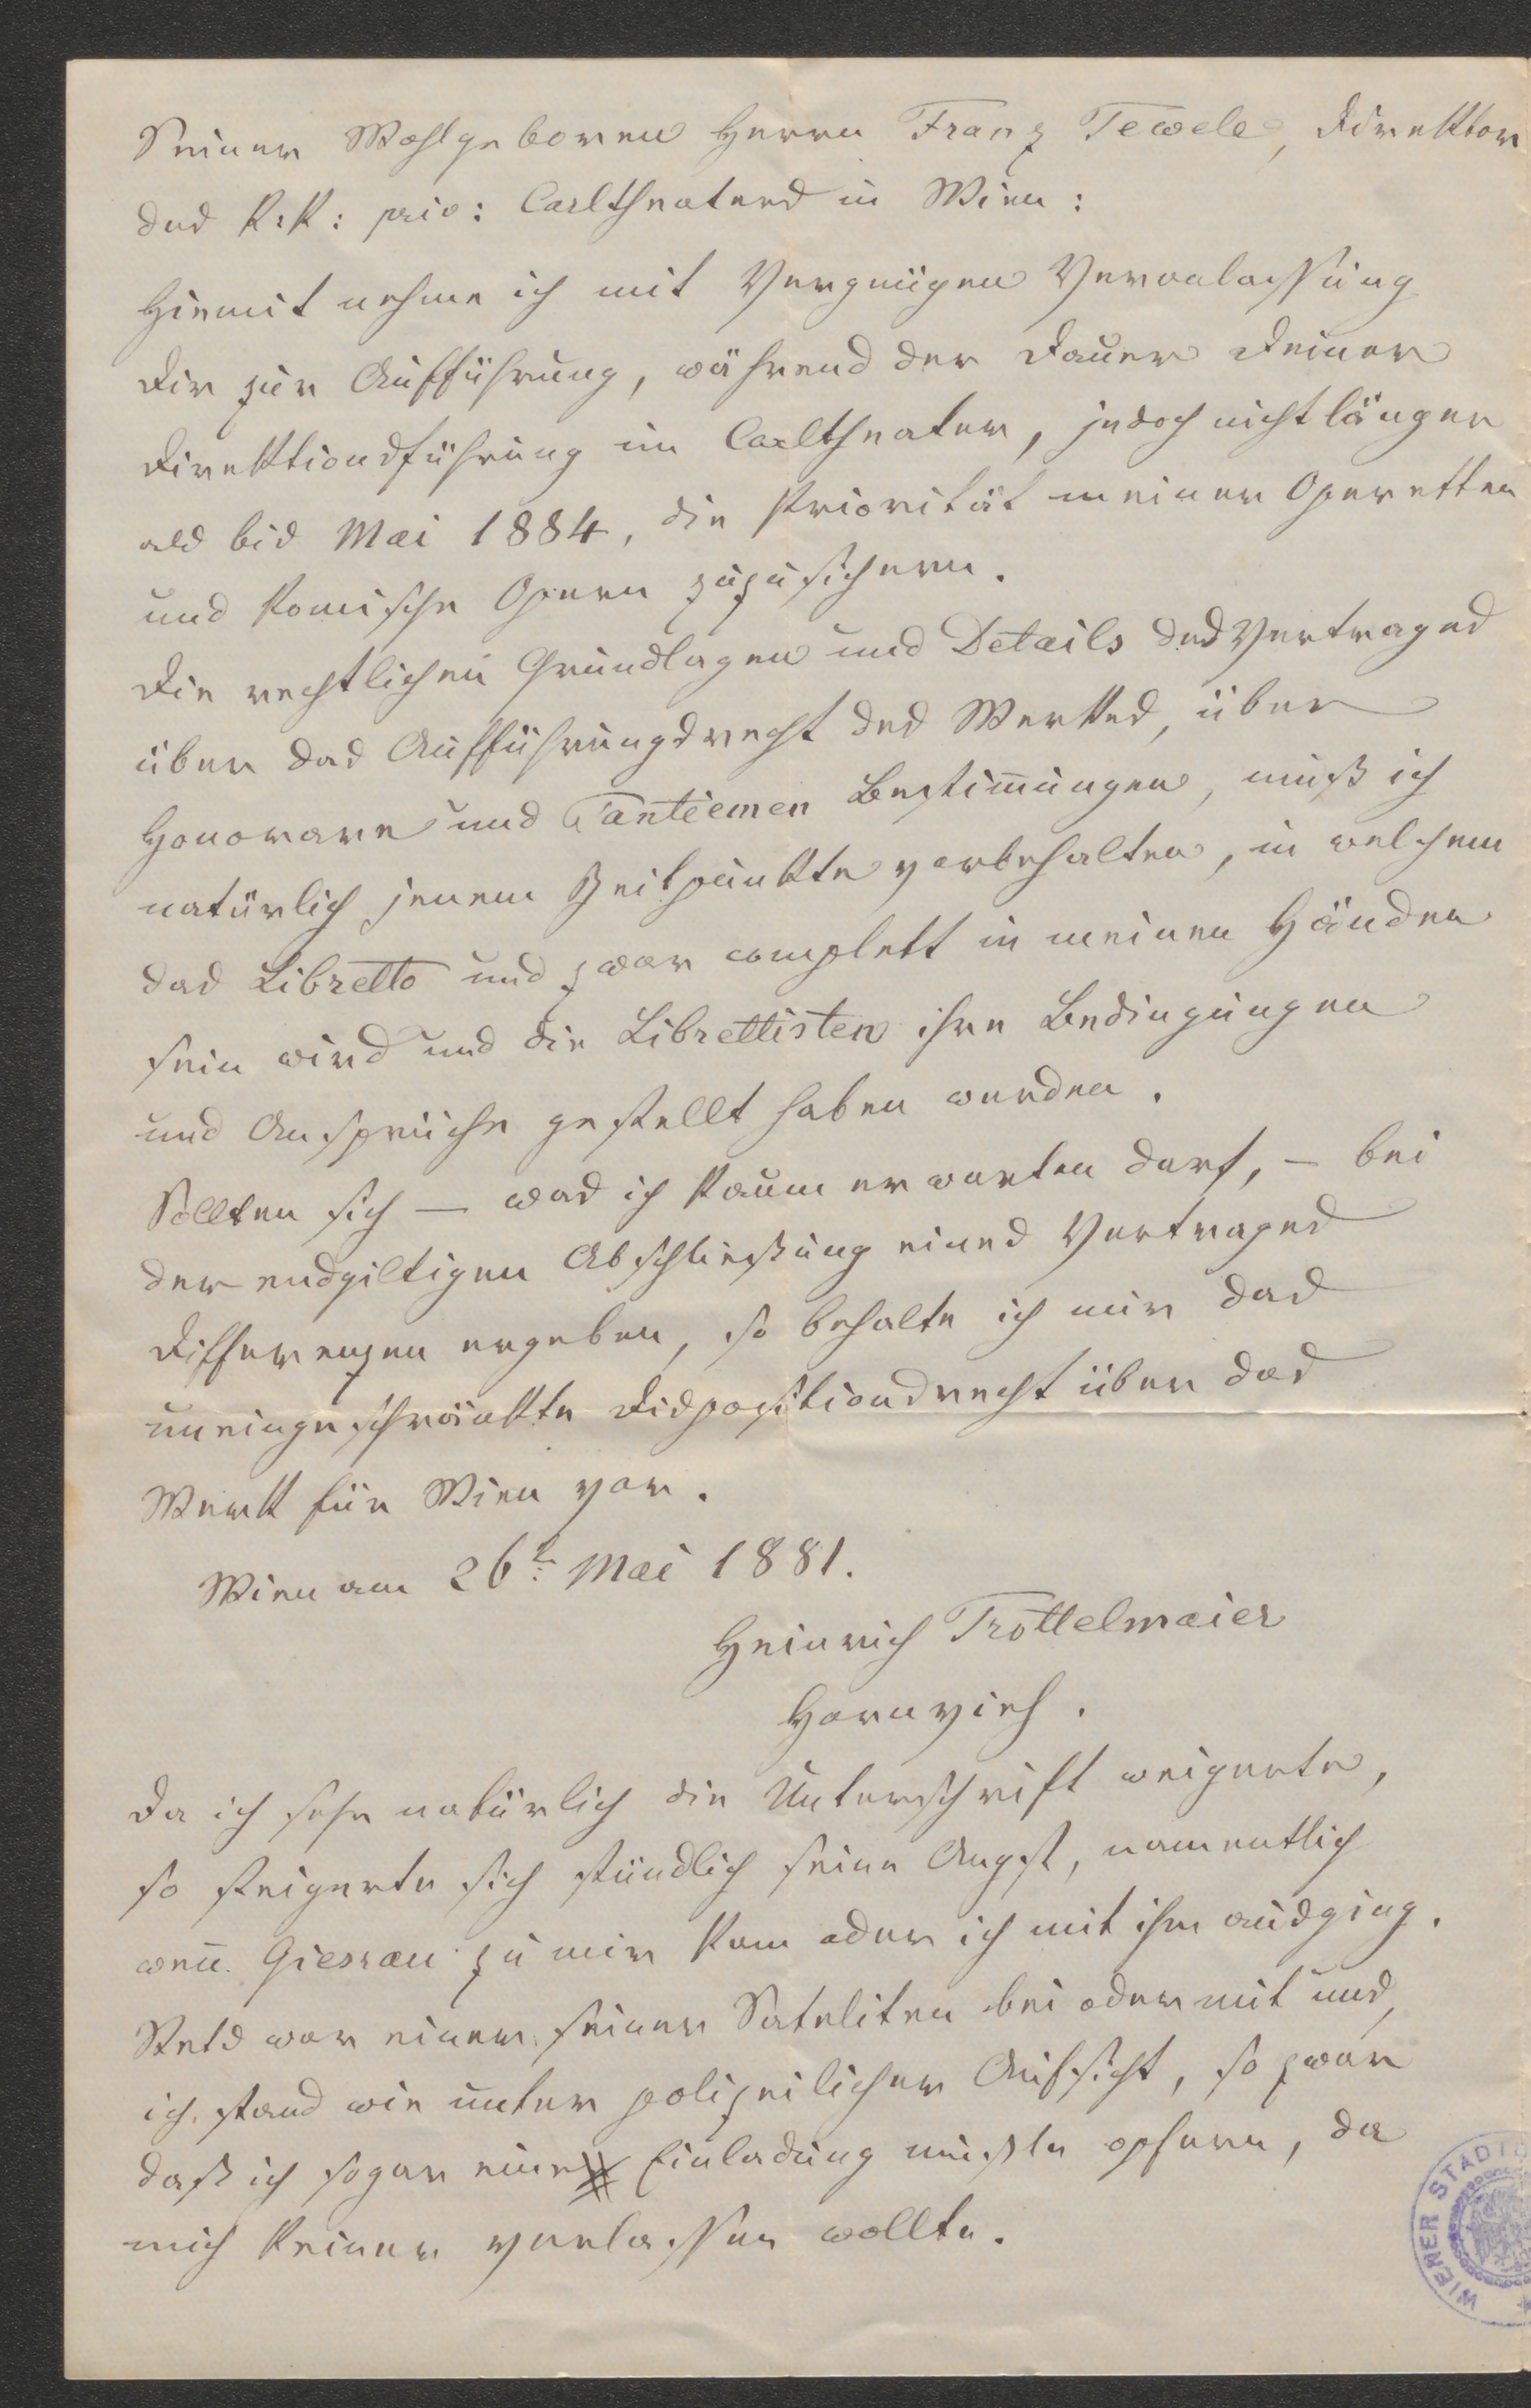 Seiner Wohlgeboren Herrn Franz Tewele, Direktor
des k: k: priv: Carltheaters in Wien:
Hiemit nehme ich mit Vergnügen Veranlassung
Dir zur Aufführung, während der Dauer Deiner
Direktionsführung im Carltheater, jedoch nicht länger
als bis Mai 1884, die Priorität meiner Operetten
und komische Opern zuzusichern.
Die rechtlichen Grundlagen und Details des Vertrages
über das Aufführungsrecht des Werkes, über
Honorare und Tantiemen Bestim̅ungen, muß ich
natürlich jenem Zeitpunkte vorbehalten, in welchem
das Libretto und zwar complett in meinen Händen
sein wird und die Librettisten ihre Bedingungen
und Ansprüche gestellt haben werden.
Sollten sich – was ich kaum erwarten darf, – bei
der endgiltigen Abschließung eines Vertrages
Differenzen ergeben, so behalte ich mir das
uneingeschränkte Dispositionsrecht über das
Werk für Wien vor.
Wien am 26t: Mai 1881.
Heinrich Trottelmaier
Hornvieh.
Da ich sehr natürlich die Unterschrift weigerte,
so steigerte sich stündlich seine Angst, namentlich
wen̅ Giesrau zu mir kam oder ich mit ihm ausging.
Stets war einer seiner Sateliten bei oder mit uns,
ich stand wie unter polizeilicher Aufsicht, so zwar
daß ich sogar eine Einladung mußte opfern, da
mich keiner verlassen wollte.
WIENER STADT